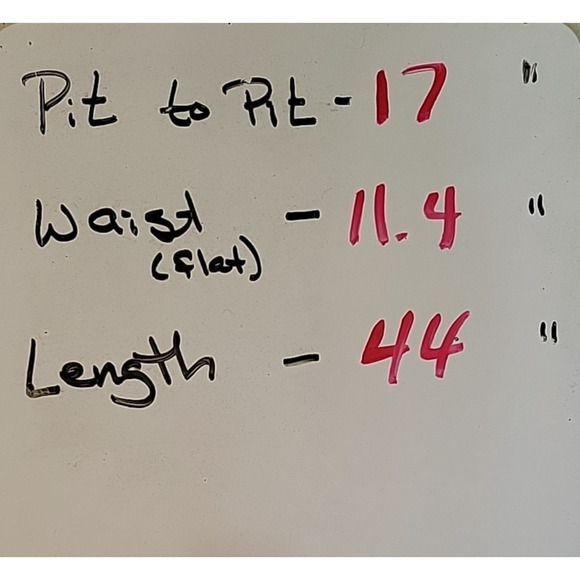 Pit to Pit - 17 "
Waist - 11.4 "
(flat)
Length - 44 "